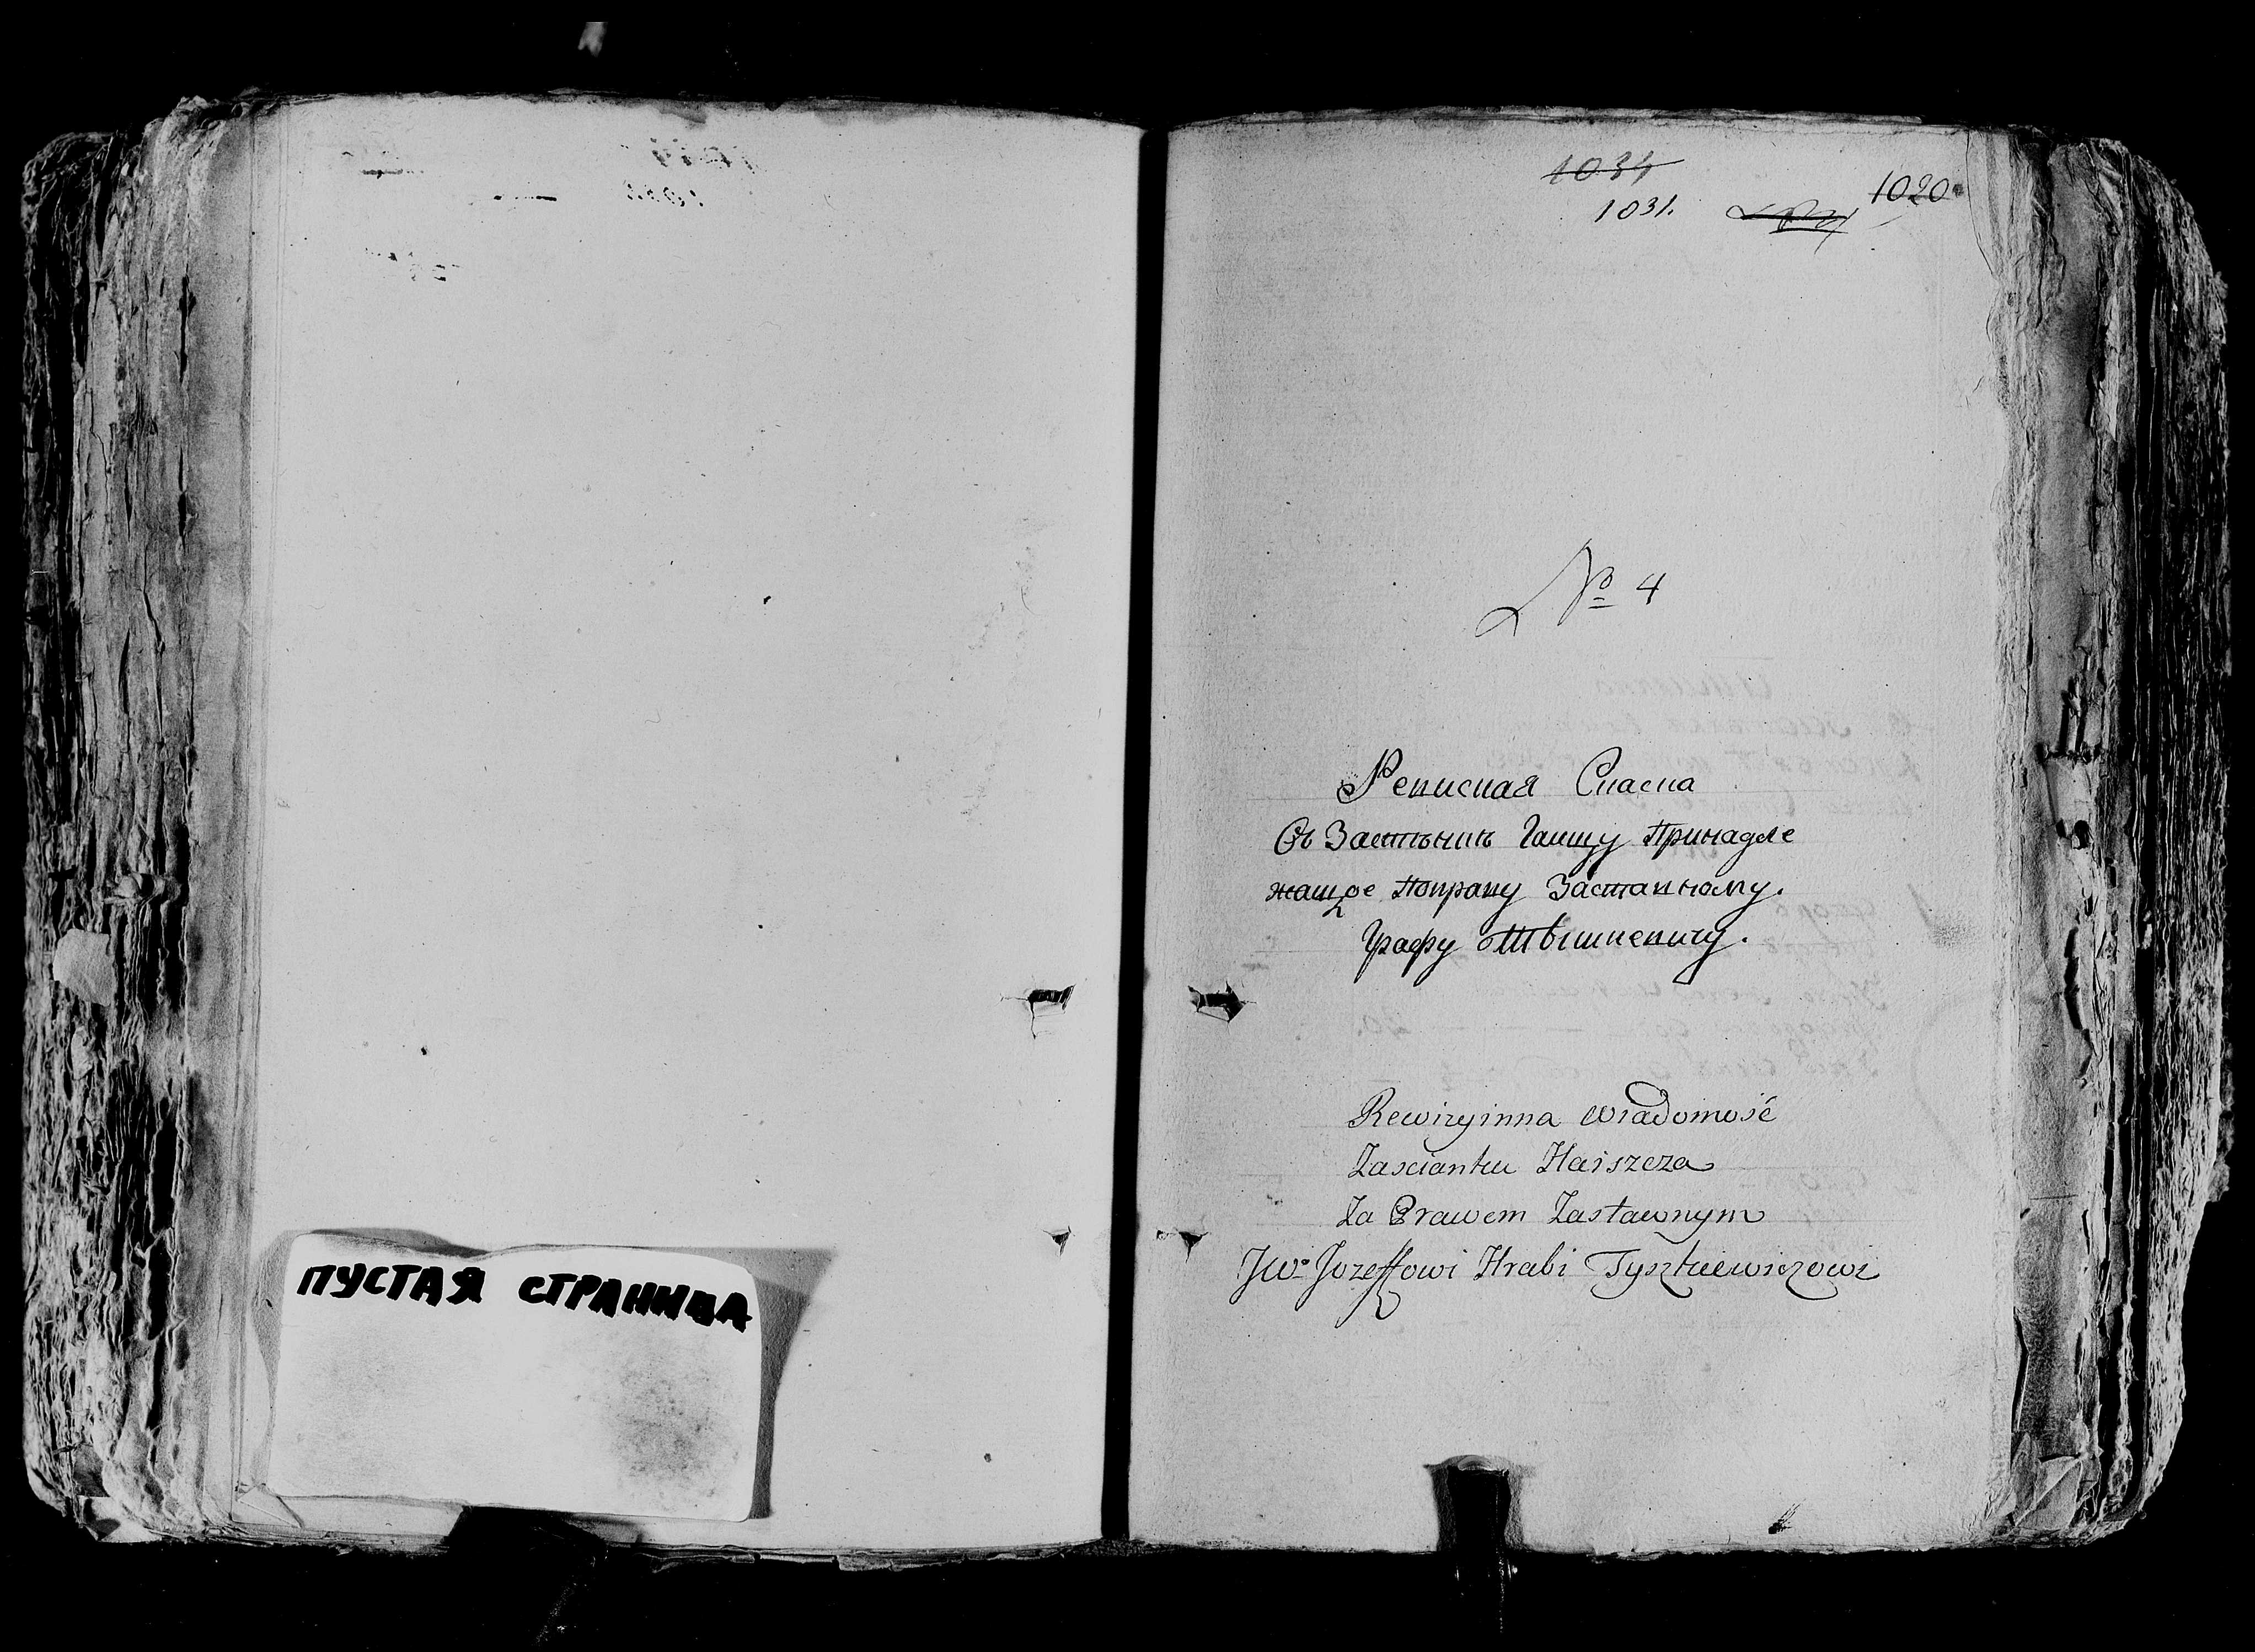 ПУСТАЯ СТРАНИЦА
1034
1031.
1020
№ 4
Ревисная Скаска
Съ Застѣнкѣ Гаищу Принадле
жащое Поправу Заставному.
Графу Тышкевичу.
Rewizyinna wiadomość
Zascianku Haiszcza
Za Prawem Zastawnym
JWo Jozeffowi Hrabi Tyszkiewiczowi